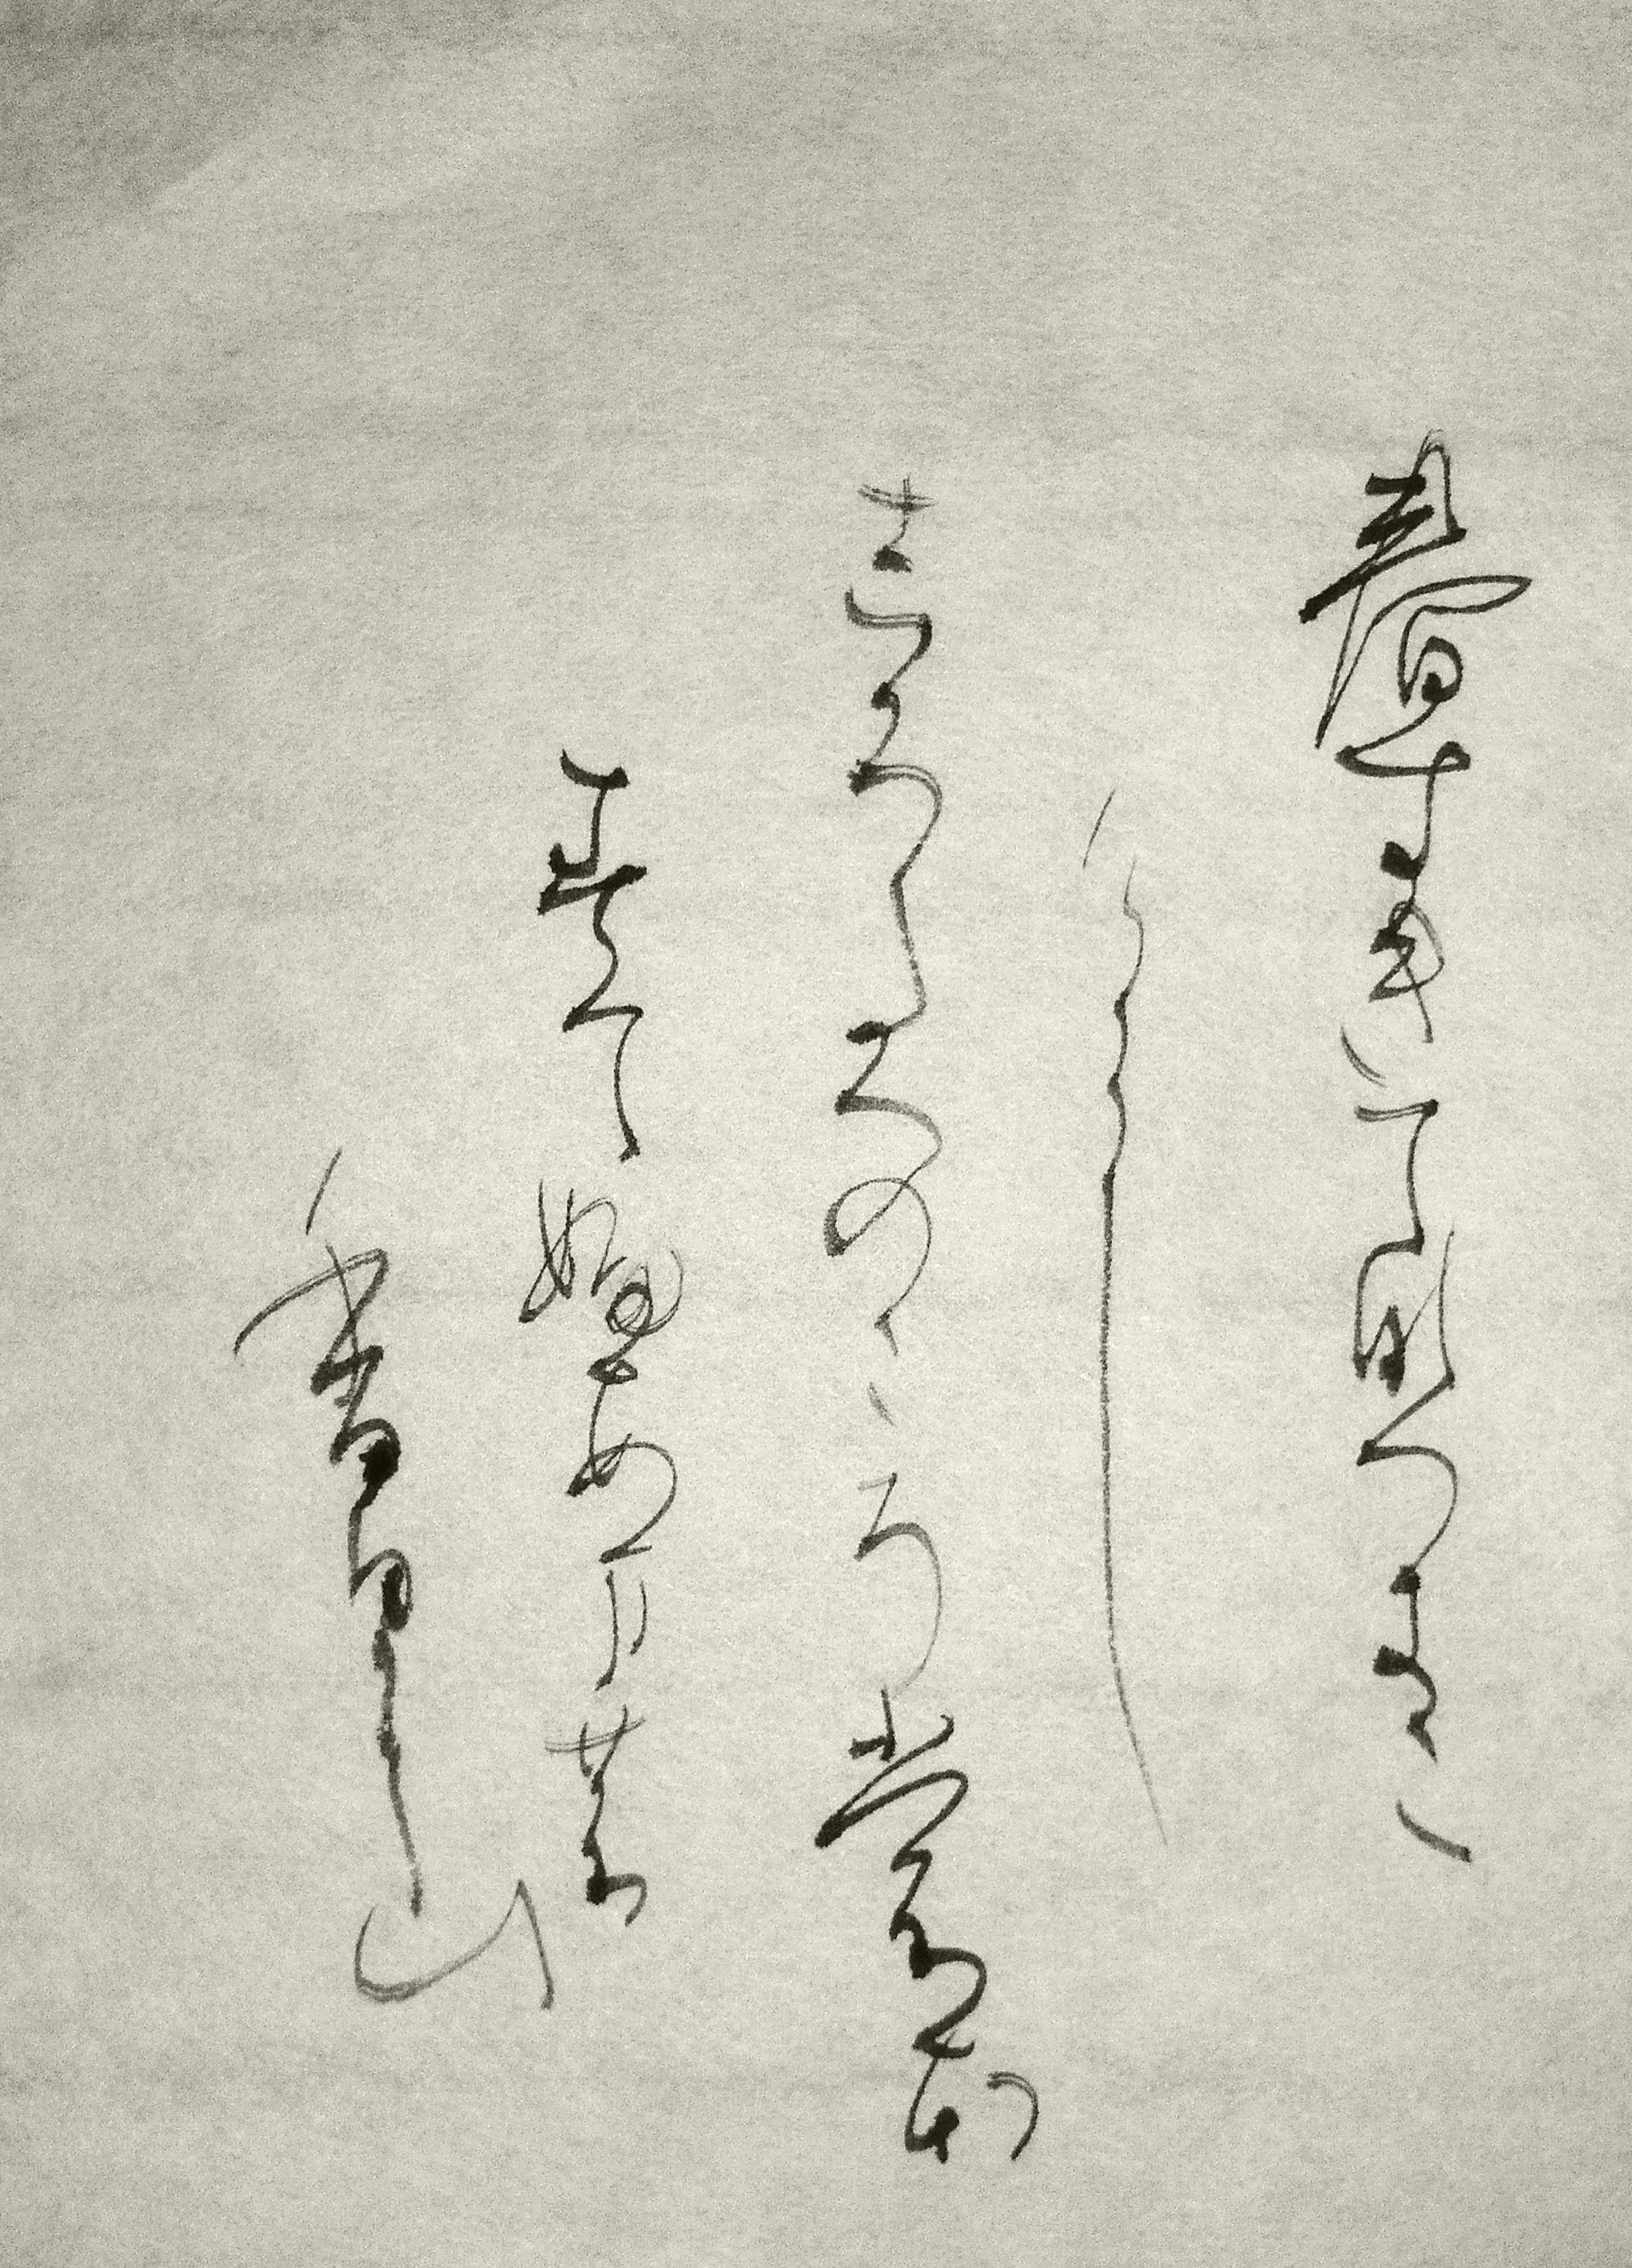 春すきて那つきに
けらし
しろたへのころ裳ほ
すてふあまの
香具山